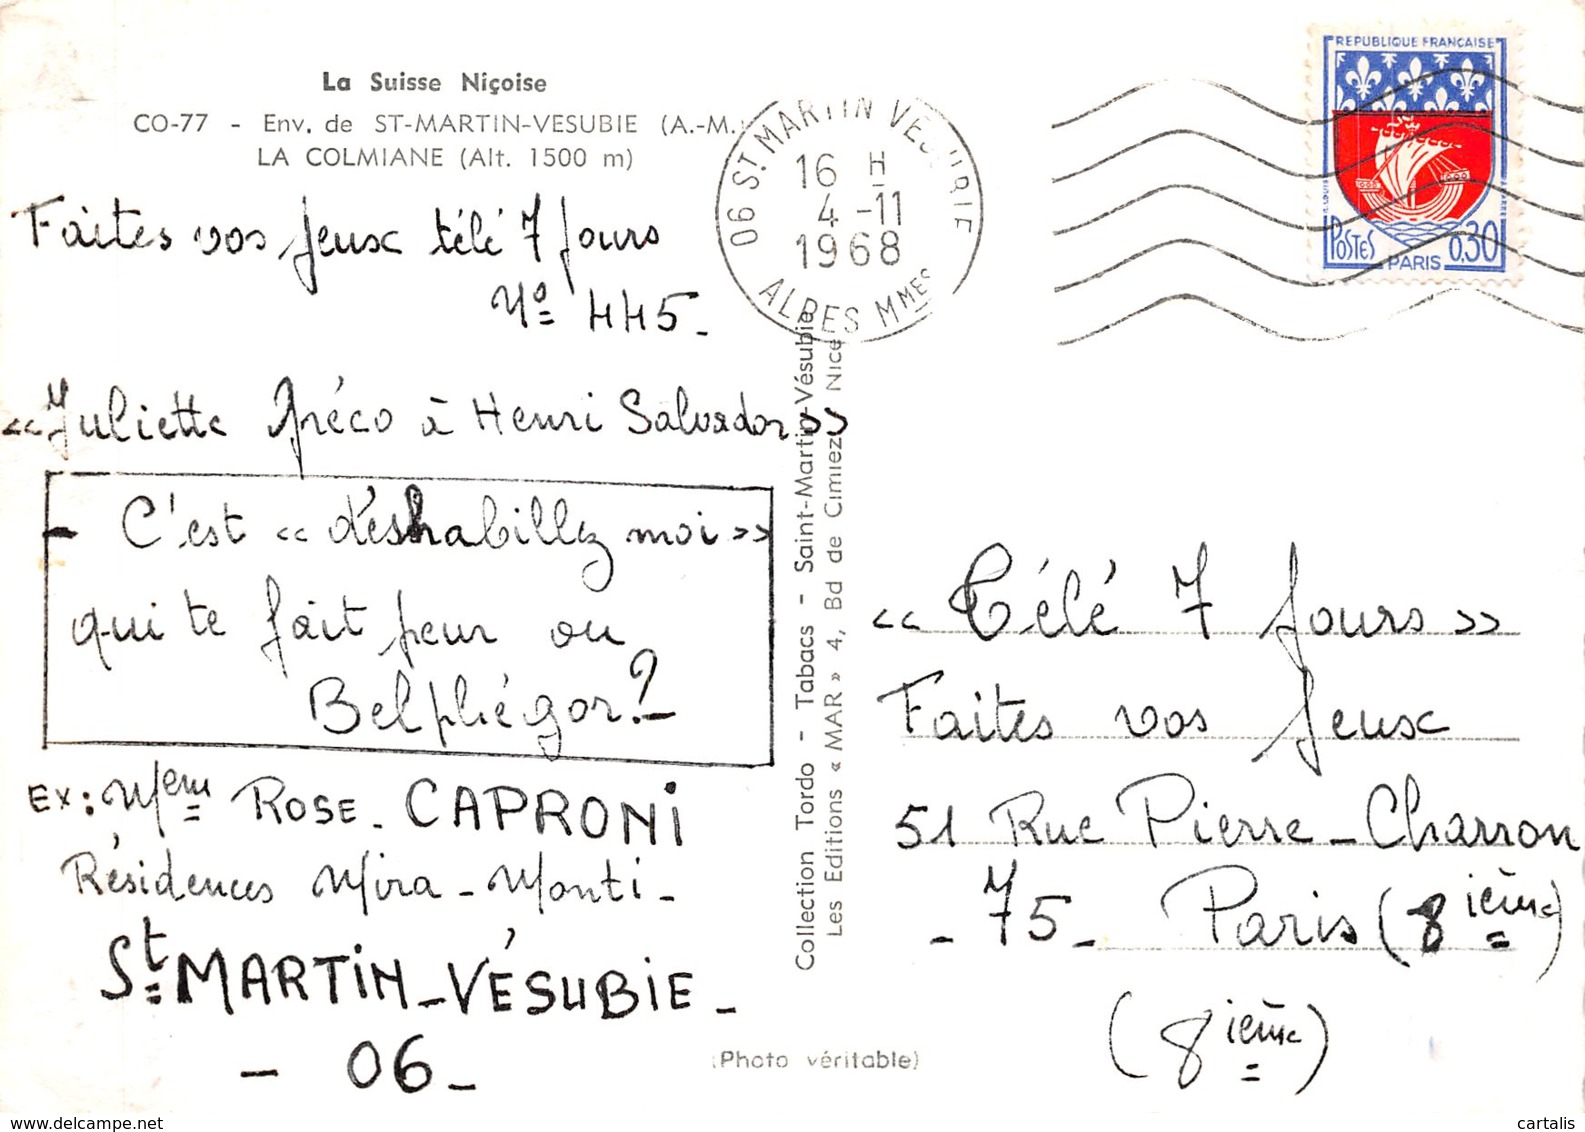 La Suisse Niçoise
CO-77 - Env. de ST-MARTIN-VESUBIE (A.-M.)
LA COLMIANE (Alt. 1500 m)
Faites vos Jeux télé 7 Jours
Nº 445-
«Juliette Gréco à Henri Salvador»
- C'est « déshabillez moi »
qui te fait peur ou
Belphégor?
EX: Mme Rose. CAPRONi
Résidences Mira-Monti-
St MARTIN-VÉSUBIE-
- 06 -
Collection Tordo - Tabacs - Saint-Martin-Vésubie
Les Editions « MAR » 4, Bd de Cimiez Nice
(Photo véritable)
06 ST MARTIN VESUBIE
16 H
4 -11
1968
ALPES Mmes
REPUBLIQUE FRANÇAISE
POSTES PARIS 0,30
« Télé 7 Jours »
Faites vos Jeux
51 Rue Pierre-Charron
- 75 - Paris (8ième)
(8ième)
delcampe.net
cartalis